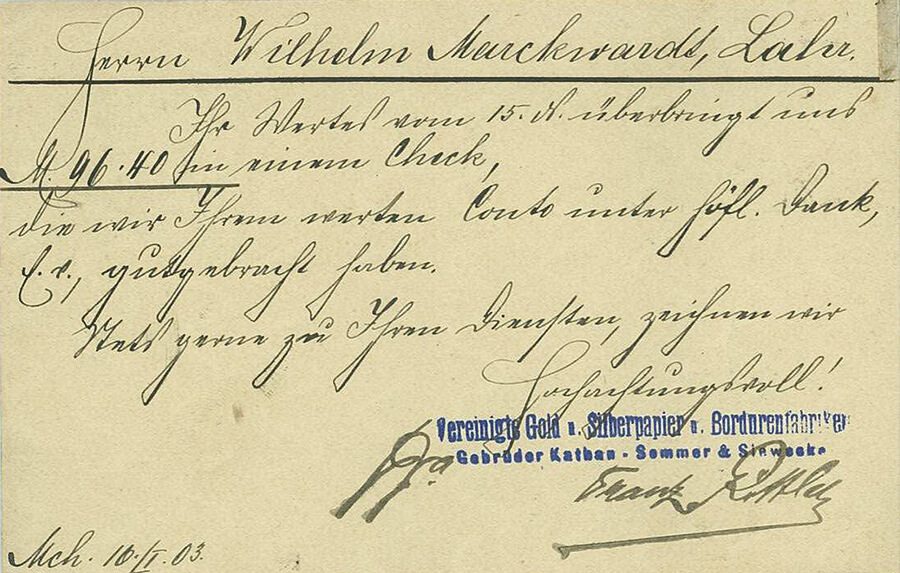 Herrn Wilhelm Marckwardt, Lahr.
Ihr Wertes vom 15. ds. überbringt uns
M. 96.40 in einem Check,
die wir Ihrem werten Conto unter höfl. Dank,
E. v., gutgebracht haben.
Stets gerne zu Ihren Diensten, zeichnen wir
Hochachtungsvoll!
Vereinigte Gold u. Silberpapier u. Bordurenfabriken
Gebrüder Kathan - Sommer & Sieweeke
ppa
Franz
Mch. 16./I. 03.